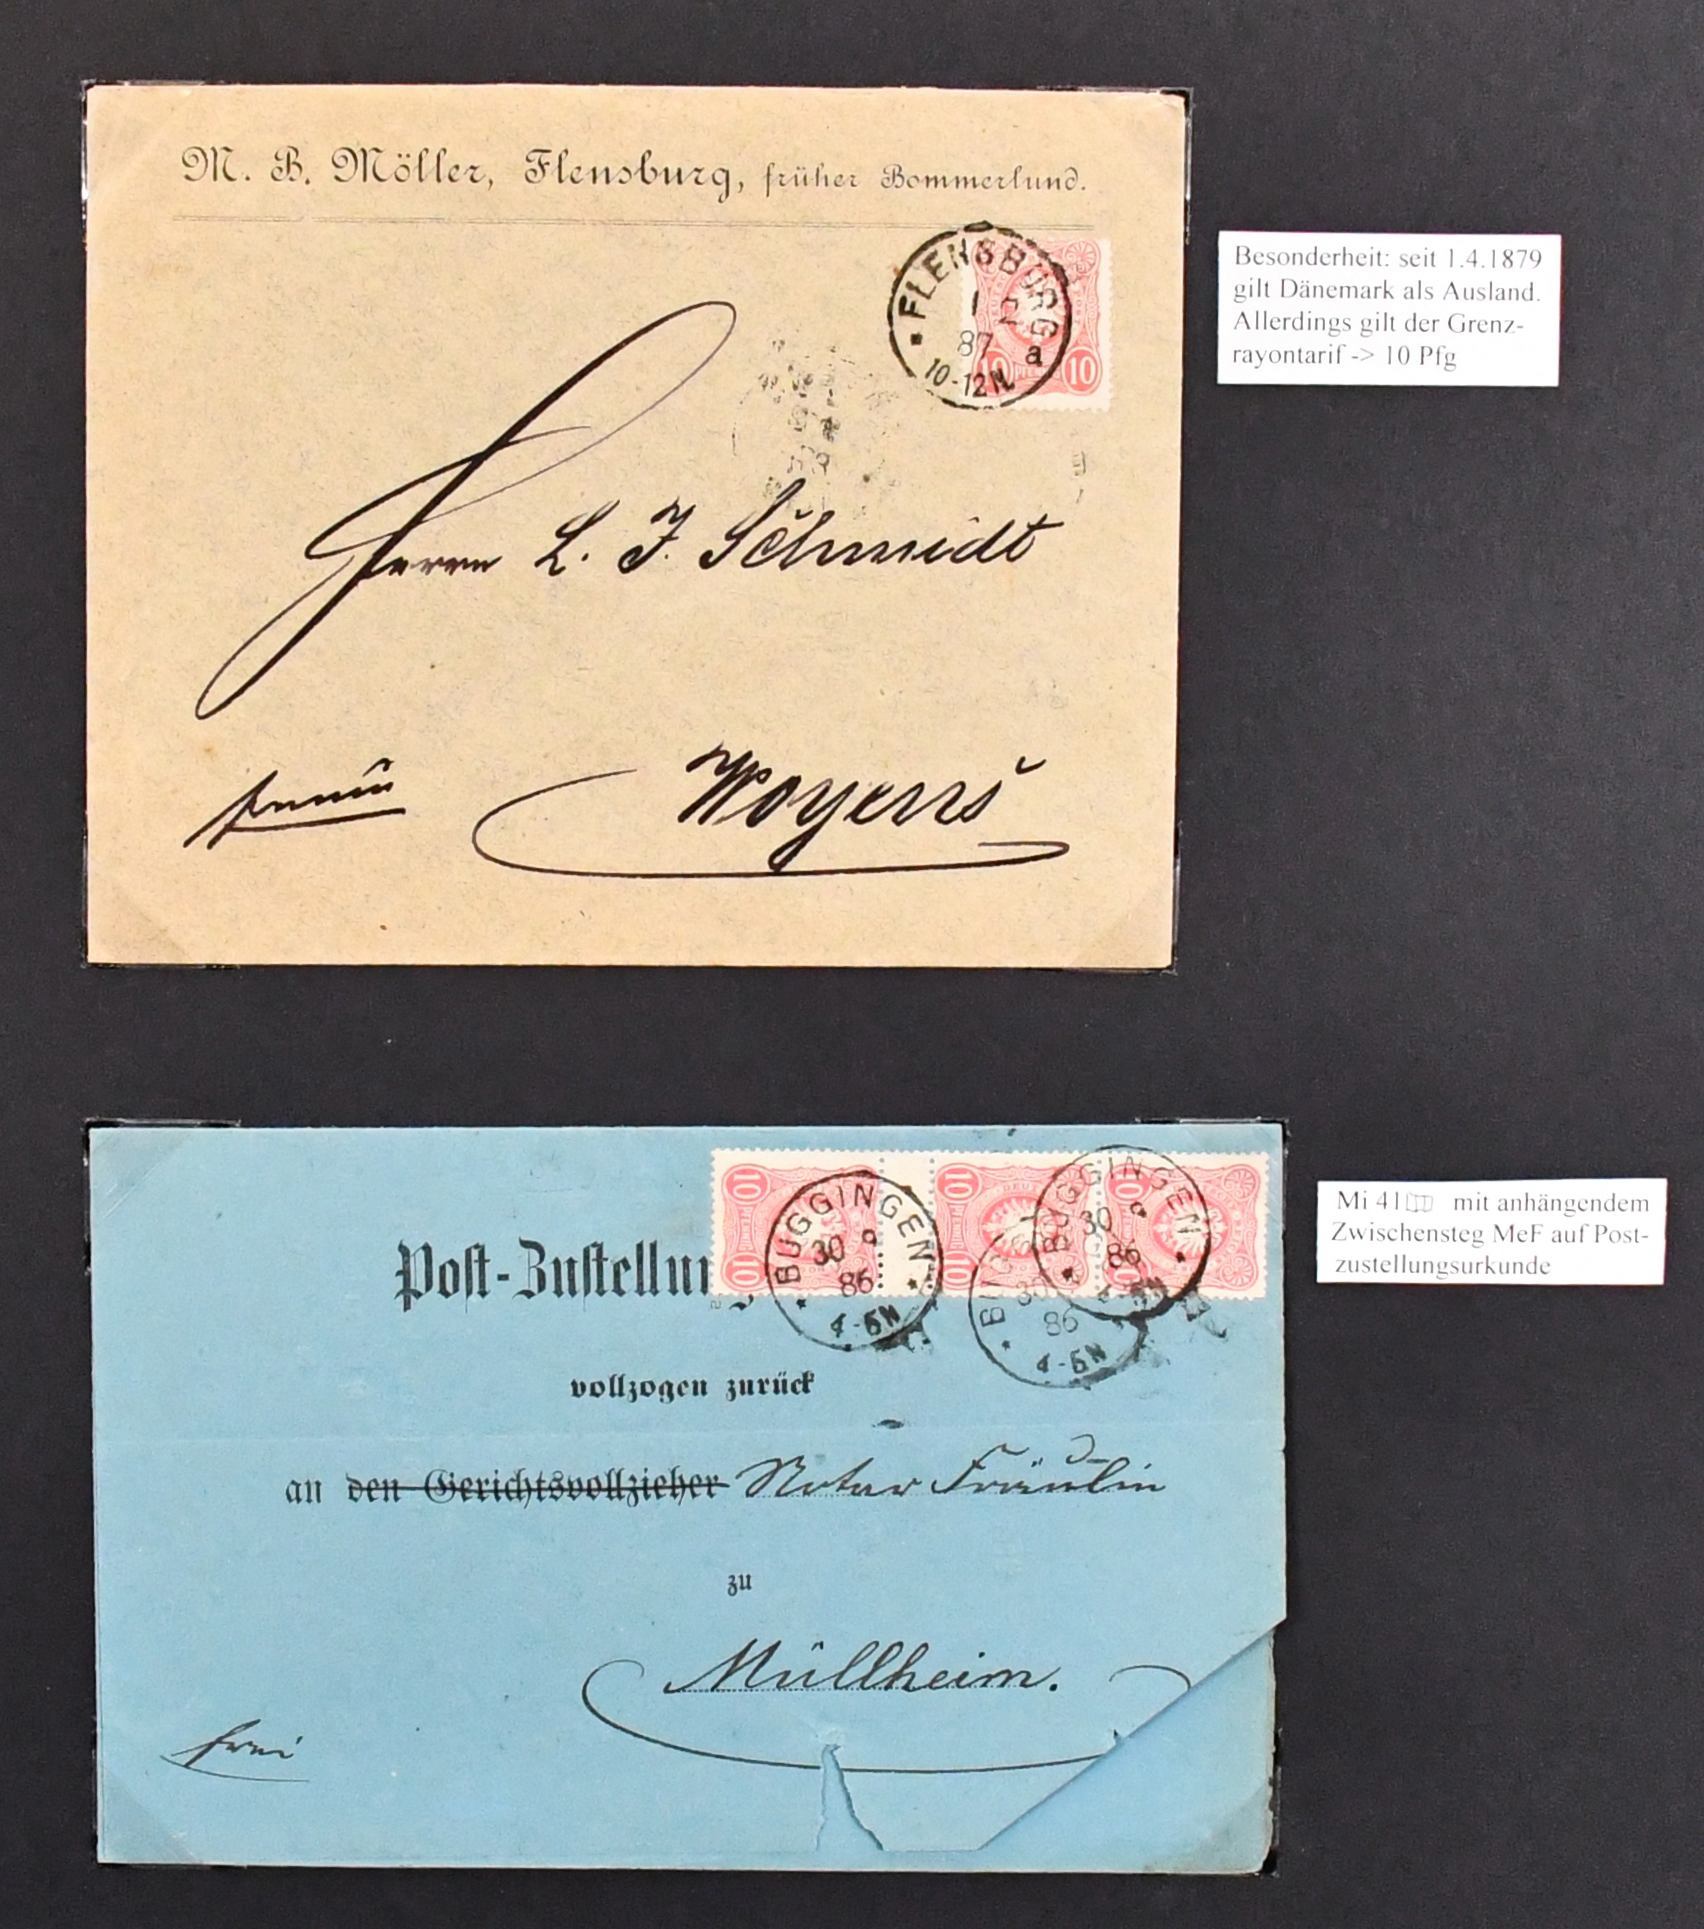 M. B. Möller, Flensburg, früher Bommerlund.
FLENSBURG
1 2
87 a
10-12N.
10 PFENNIG 10
Herrn L. J. Schmidt
Woyens
Besonderheit: seit 1.4.1879
gilt Dänemark als Ausland.
Allerdings gilt der Grenz-
rayontarif -> 10 Pfg
10 10 10
BUGGINGEN
30 9
86
4-5N
BUGGINGEN
30 9
86
BUGGINGEN
30
86
4-5N
Post-Zustellun
vollzogen zurück
an den Gerichtsvollzieher Notar Fräulin
zu
Müllheim.
frei
Mi 41 mit anhängendem
Zwischensteg MeF auf Post-
zustellungsurkunde